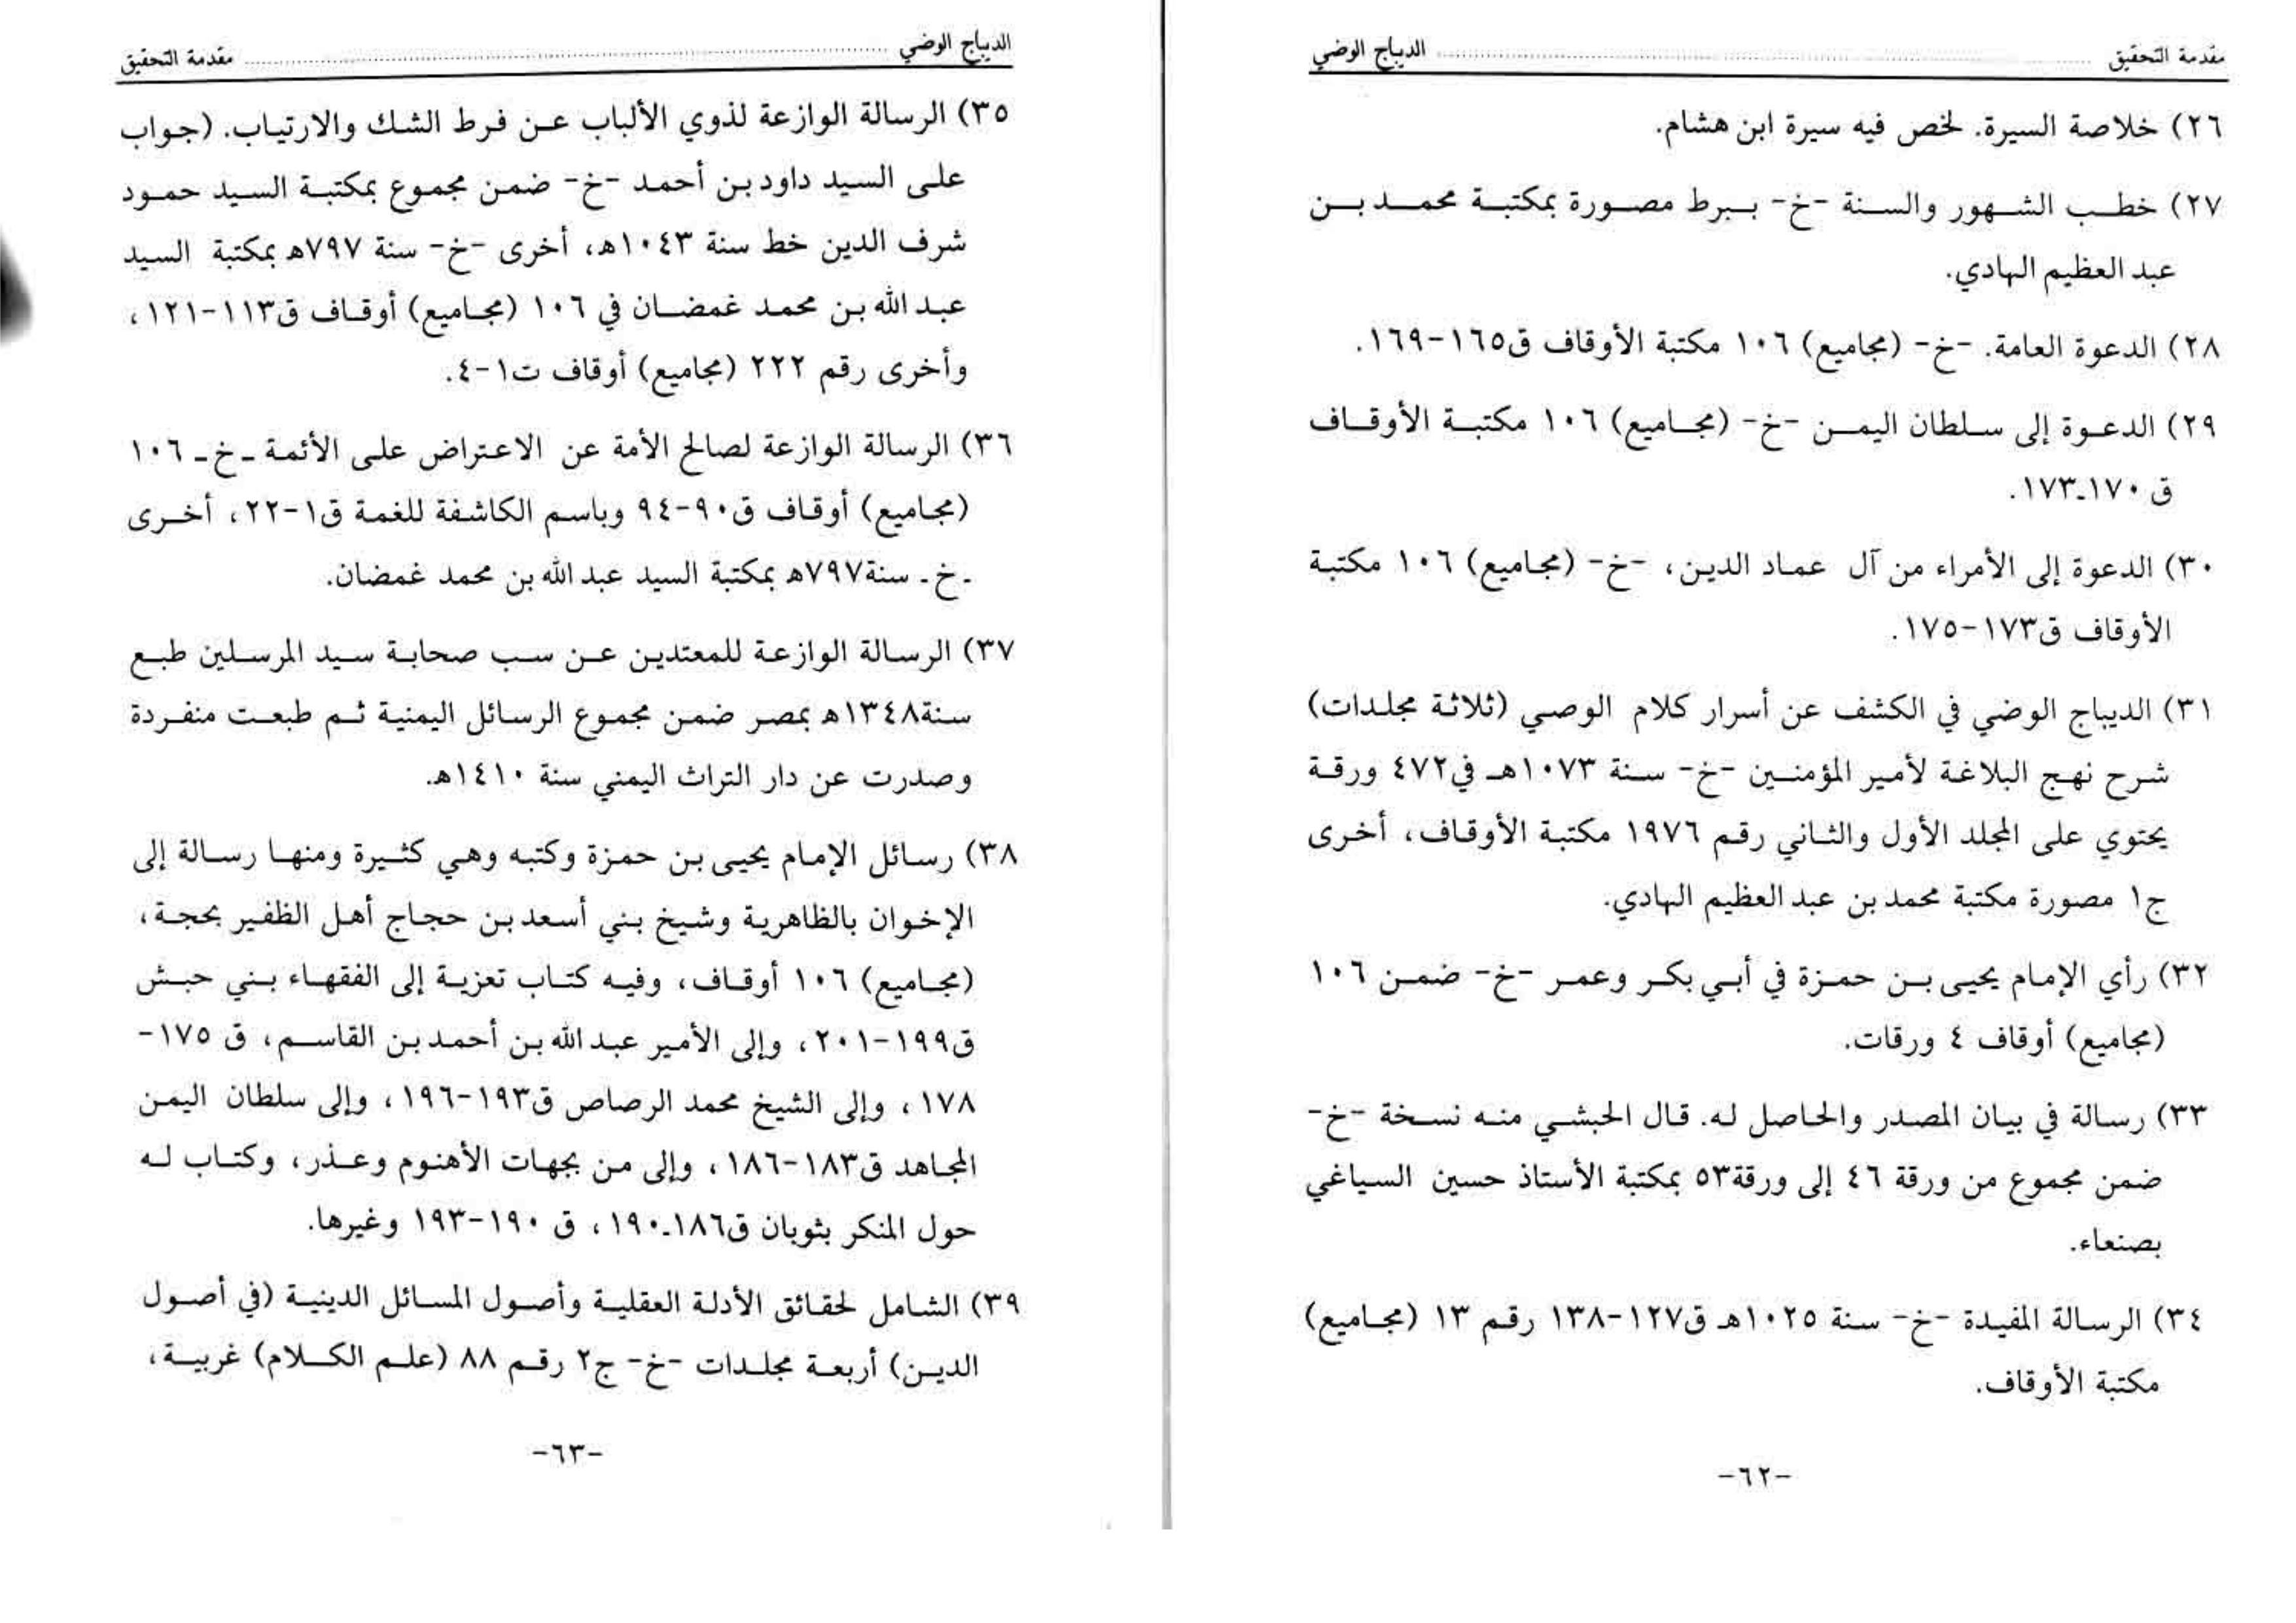 مقدمة التحقيق ........ الديباج الوضي
٢٦) خلاصة السيرة. لخص فيه سيرة ابن هشام.
٢٧) خطب الشهور والسنة -خ- ببرط مصورة بمكتبة محمد بن
عبد العظيم الهادي.
٢٨) الدعوة العامة. -خ- (مجاميع) ١٠٦ مكتبة الأوقاف ق١٦٥-١٦٩.
٢٩) الدعوة إلى سلطان اليمن -خ- (مجاميع) ١٠٦ مكتبة الأوقاف
ق ١٧٠ـ١٧٣.
٣٠) الدعوة إلى الأمراء من آل عماد الدين، -خ- (مجاميع) ١٠٦ مكتبة
الأوقاف ق١٧٣-١٧٥.
٣١) الديباج الوضي في الكشف عن أسرار كلام الوصي (ثلاثة مجلدات)
شرح نهج البلاغة لأمير المؤمنين -خ- سنة ١٠٧٣هـ في٤٧٢ ورقة
يحتوي على المجلد الأول والثاني رقم ١٩٧٦ مكتبة الأوقاف، أخرى
ج١ مصورة مكتبة محمد بن عبد العظيم الهادي.
٣٢) رأي الإمام يحيى بن حمزة في أبي بكر وعمر -خ- ضمن ١٠٦
(مجاميع) أوقاف ٤ ورقات.
٣٣) رسالة في بيان المصدر والحاصل له. قال الحبشي منه نسخة -خ-
ضمن مجموع من ورقة ٤٦ إلى ورقة٥٣ بمكتبة الأستاذ حسين السياغي
بصنعاء.
٣٤) الرسالة المفيدة -خ- سنة ١٠٢٥هـ ق١٢٧-١٣٨ رقم ١٣ (مجاميع)
مكتبة الأوقاف.
-٦٢-
الديباج الوضي ........ مقدمة التحقيق
٣٥) الرسالة الوازعة لذوي الألباب عن فرط الشك والارتياب. (جواب
على السيد داود بن أحمد -خ- ضمن مجموع بمكتبة السيد حمود
شرف الدين خط سنة ١٠٤٣هـ، أخرى -خ- سنة ٧٩٧هـ بمكتبة السيد
عبد الله بن محمد غمضان في ١٠٦ (مجاميع) أوقاف ق١١٣-١٢١،
وأخرى رقم ٢٢٢ (مجاميع) أوقاف ت١-٤.
٣٦) الرسالة الوازعة لصالح الأمة عن الاعتراض على الأئمة ـ خ ـ ١٠٦
(مجاميع) أوقاف ق٩٠-٩٤ وباسم الكاشفة للغمة ق١-٢٢، أخرى
ـ خ ـ سنة٧٩٧هـ بمكتبة السيد عبد الله بن محمد غمضان.
٣٧) الرسالة الوازعة للمعتدين عن سب صحابة سيد المرسلين طبع
سنة١٣٤٨هـ بمصر ضمن مجموع الرسائل اليمنية ثم طبعت منفردة
وصدرت عن دار التراث اليمني سنة ١٤١٠هـ.
٣٨) رسائل الإمام يحيى بن حمزة وكتبه وهي كثيرة ومنها رسالة إلى
الإخوان بالظاهرية وشيخ بني أسعد بن حجاج أهل الظفير بحجة،
(مجاميع) ١٠٦ أوقاف، وفيه كتاب تعزية إلى الفقهاء بني حبش
ق١٩٩-٢٠١، وإلى الأمير عبد الله بن أحمد بن القاسم، ق ١٧٥-
١٧٨، وإلى الشيخ محمد الرصاص ق١٩٣-١٩٦، وإلى سلطان اليمن
المجاهد ق١٨٣-١٨٦، وإلى من بجهات الأهنوم وعذر، وكتاب له
حول المنكر بثوبان ق١٨٦ـ١٩٠، ق ١٩٠-١٩٣ وغيرها.
٣٩) الشامل لحقائق الأدلة العقلية وأصول المسائل الدينية (في أصول
الدين) أربعة مجلدات -خ- ج٢ رقم ٨٨ (علم الكلام) غربية،
-٦٣-